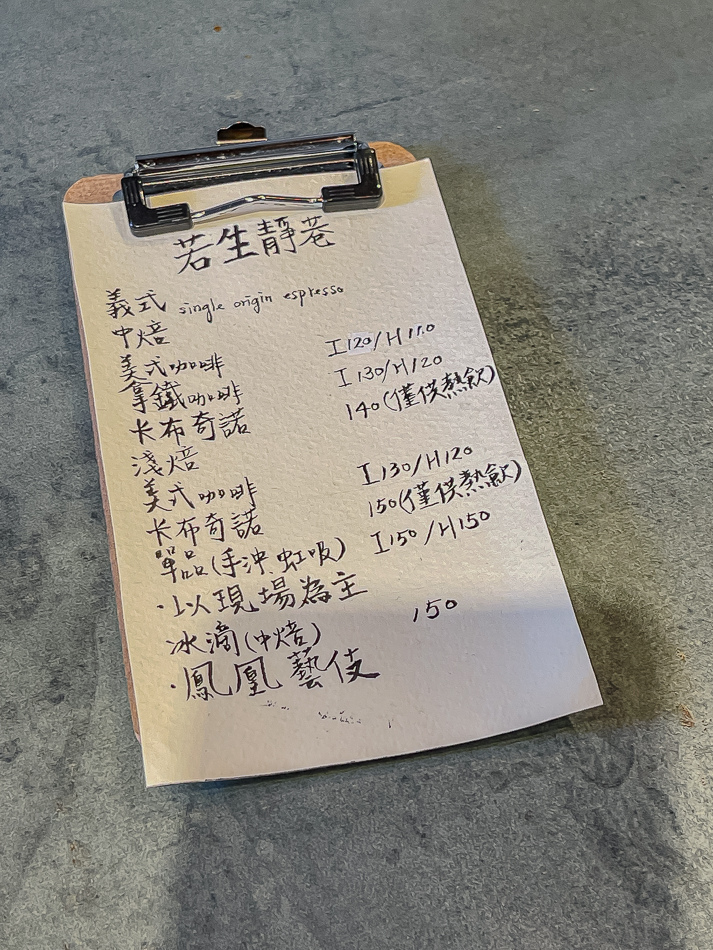 若生靜巷
義式 single origin espresso
中焙
美式咖啡 I120/H110
拿鐵咖啡 I130/H120
卡布奇諾 140(僅供熱飲)
淺焙
美式咖啡 I130/H120
卡布奇諾 150(僅供熱飲)
單品(手沖.虹吸) I150/H150
·以現場為主
冰滴(中焙) 150
·鳳凰藝伎